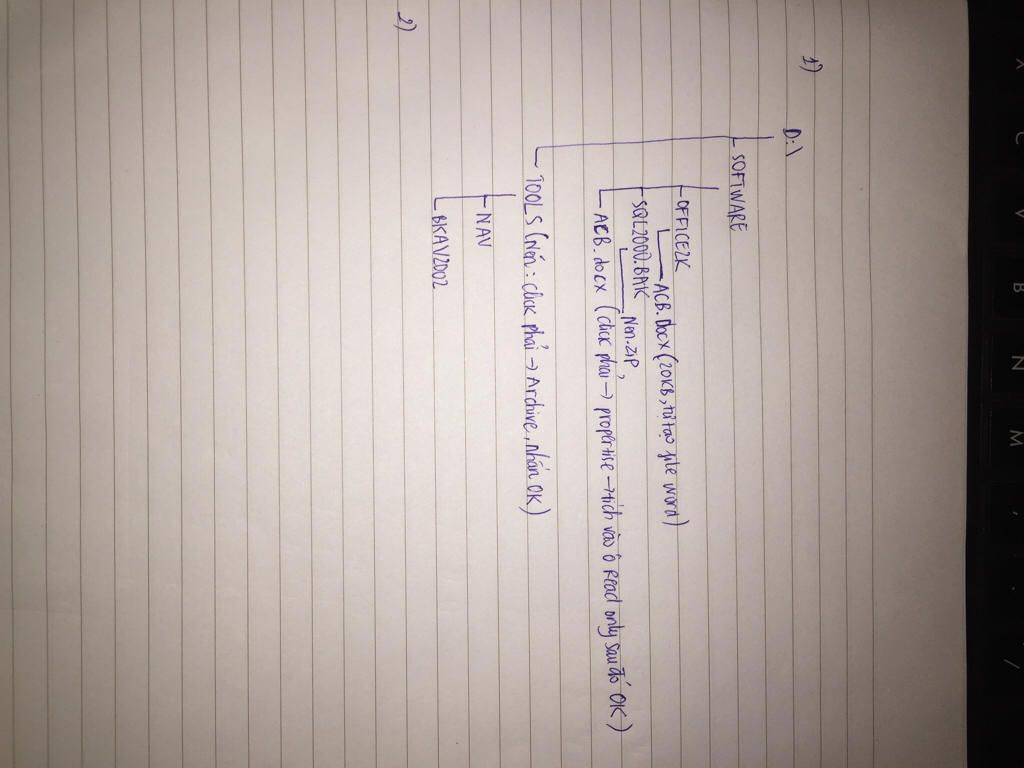 1)
D:\
SOFTWARE
OFFICE2K
ACB.Docx (20KB, tự tạo file word)
SQL2000.BAK
Nén.ZIP,
ACB.docx (clik phải → propertie → tích vào ô Read only sau đó OK)
TOOLS (Nén: click phải → Archive, nhấn OK)
NAV
BKAV2002
2)
X C V B N M , . /